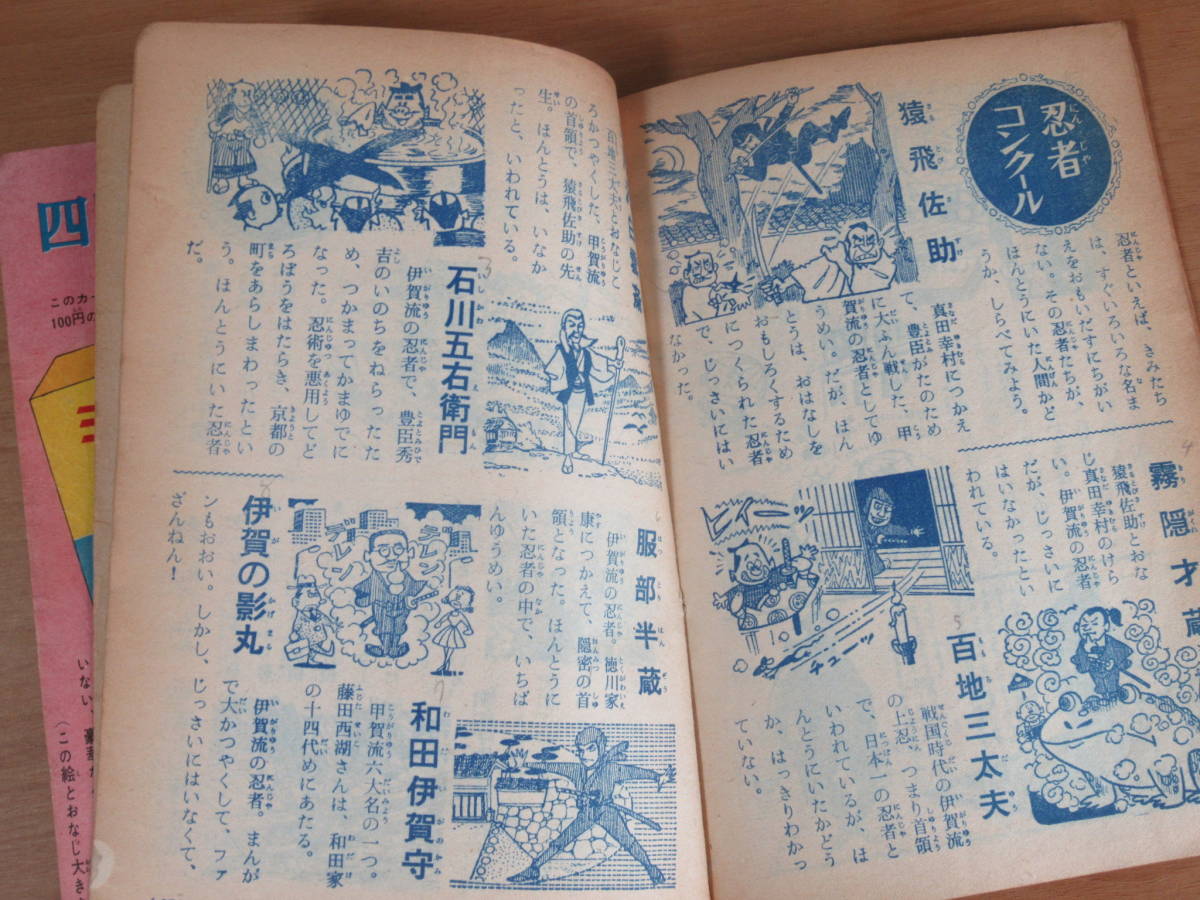 忍者
コンクール
忍者といえば、きみたち
は、すぐいろいろな名ま
えをおもいだすにちがい
ない。その忍者たちが、
ほんとうにいた人間かど
うか、しらべてみよう。
猿飛佐助
真田幸村につかえ
て、豊臣がたのため
に大ふん戦した、甲
賀流の忍者としてゆ
うめい。だが、ほん
とうは、おはなしを
おもしろくするため
につくられた忍者
で、じっさいにはい
なかった。
霧隠才蔵
猿飛佐助とおな
じ真田幸村のけら
い。伊賀流の忍者
だが、じっさいに
はいなかったとい
われている。
ヒィーッ
チューッ
百地三太夫
戦国時代の伊賀流
の上忍、つまり首領
で、日本一の忍者と
いわれているが、ほ
んとうにいたかどう
か、はっきりわかっ
ていない。
百地三太夫とおなじこ
ろかつやくした、甲賀流
の首領で、猿飛佐助の先
生。ほんとうは、いなか
ったと、いわれている。
石川五右衛門
伊賀流の忍者で、豊臣秀
吉のいのちをねらったた
め、つかまってかまゆでに
なった。忍術を悪用してど
ろぼうをはたらき、京都の
町をあらしまわったとい
う。ほんとうにいた忍者
だ。
服部半蔵
伊賀流の忍者。徳川家
康につかえて、隠密の首
領となった。ほんとうに
いた忍者の中で、いちば
んゆうめい。
和田伊賀守
甲賀流六大名の一つ。
藤田西湖さんは、和田家
の十四代めにあたる。
デレン
デレン
伊賀の影丸
伊賀流の忍者。まんが
で大かつやくして、ファ
ンもおおい。しかし、
じっさいにはいなくて、
ざんねん！
四
このカー
100円の
いない、
（この絵とおなじ大き
3
4
5
7
8